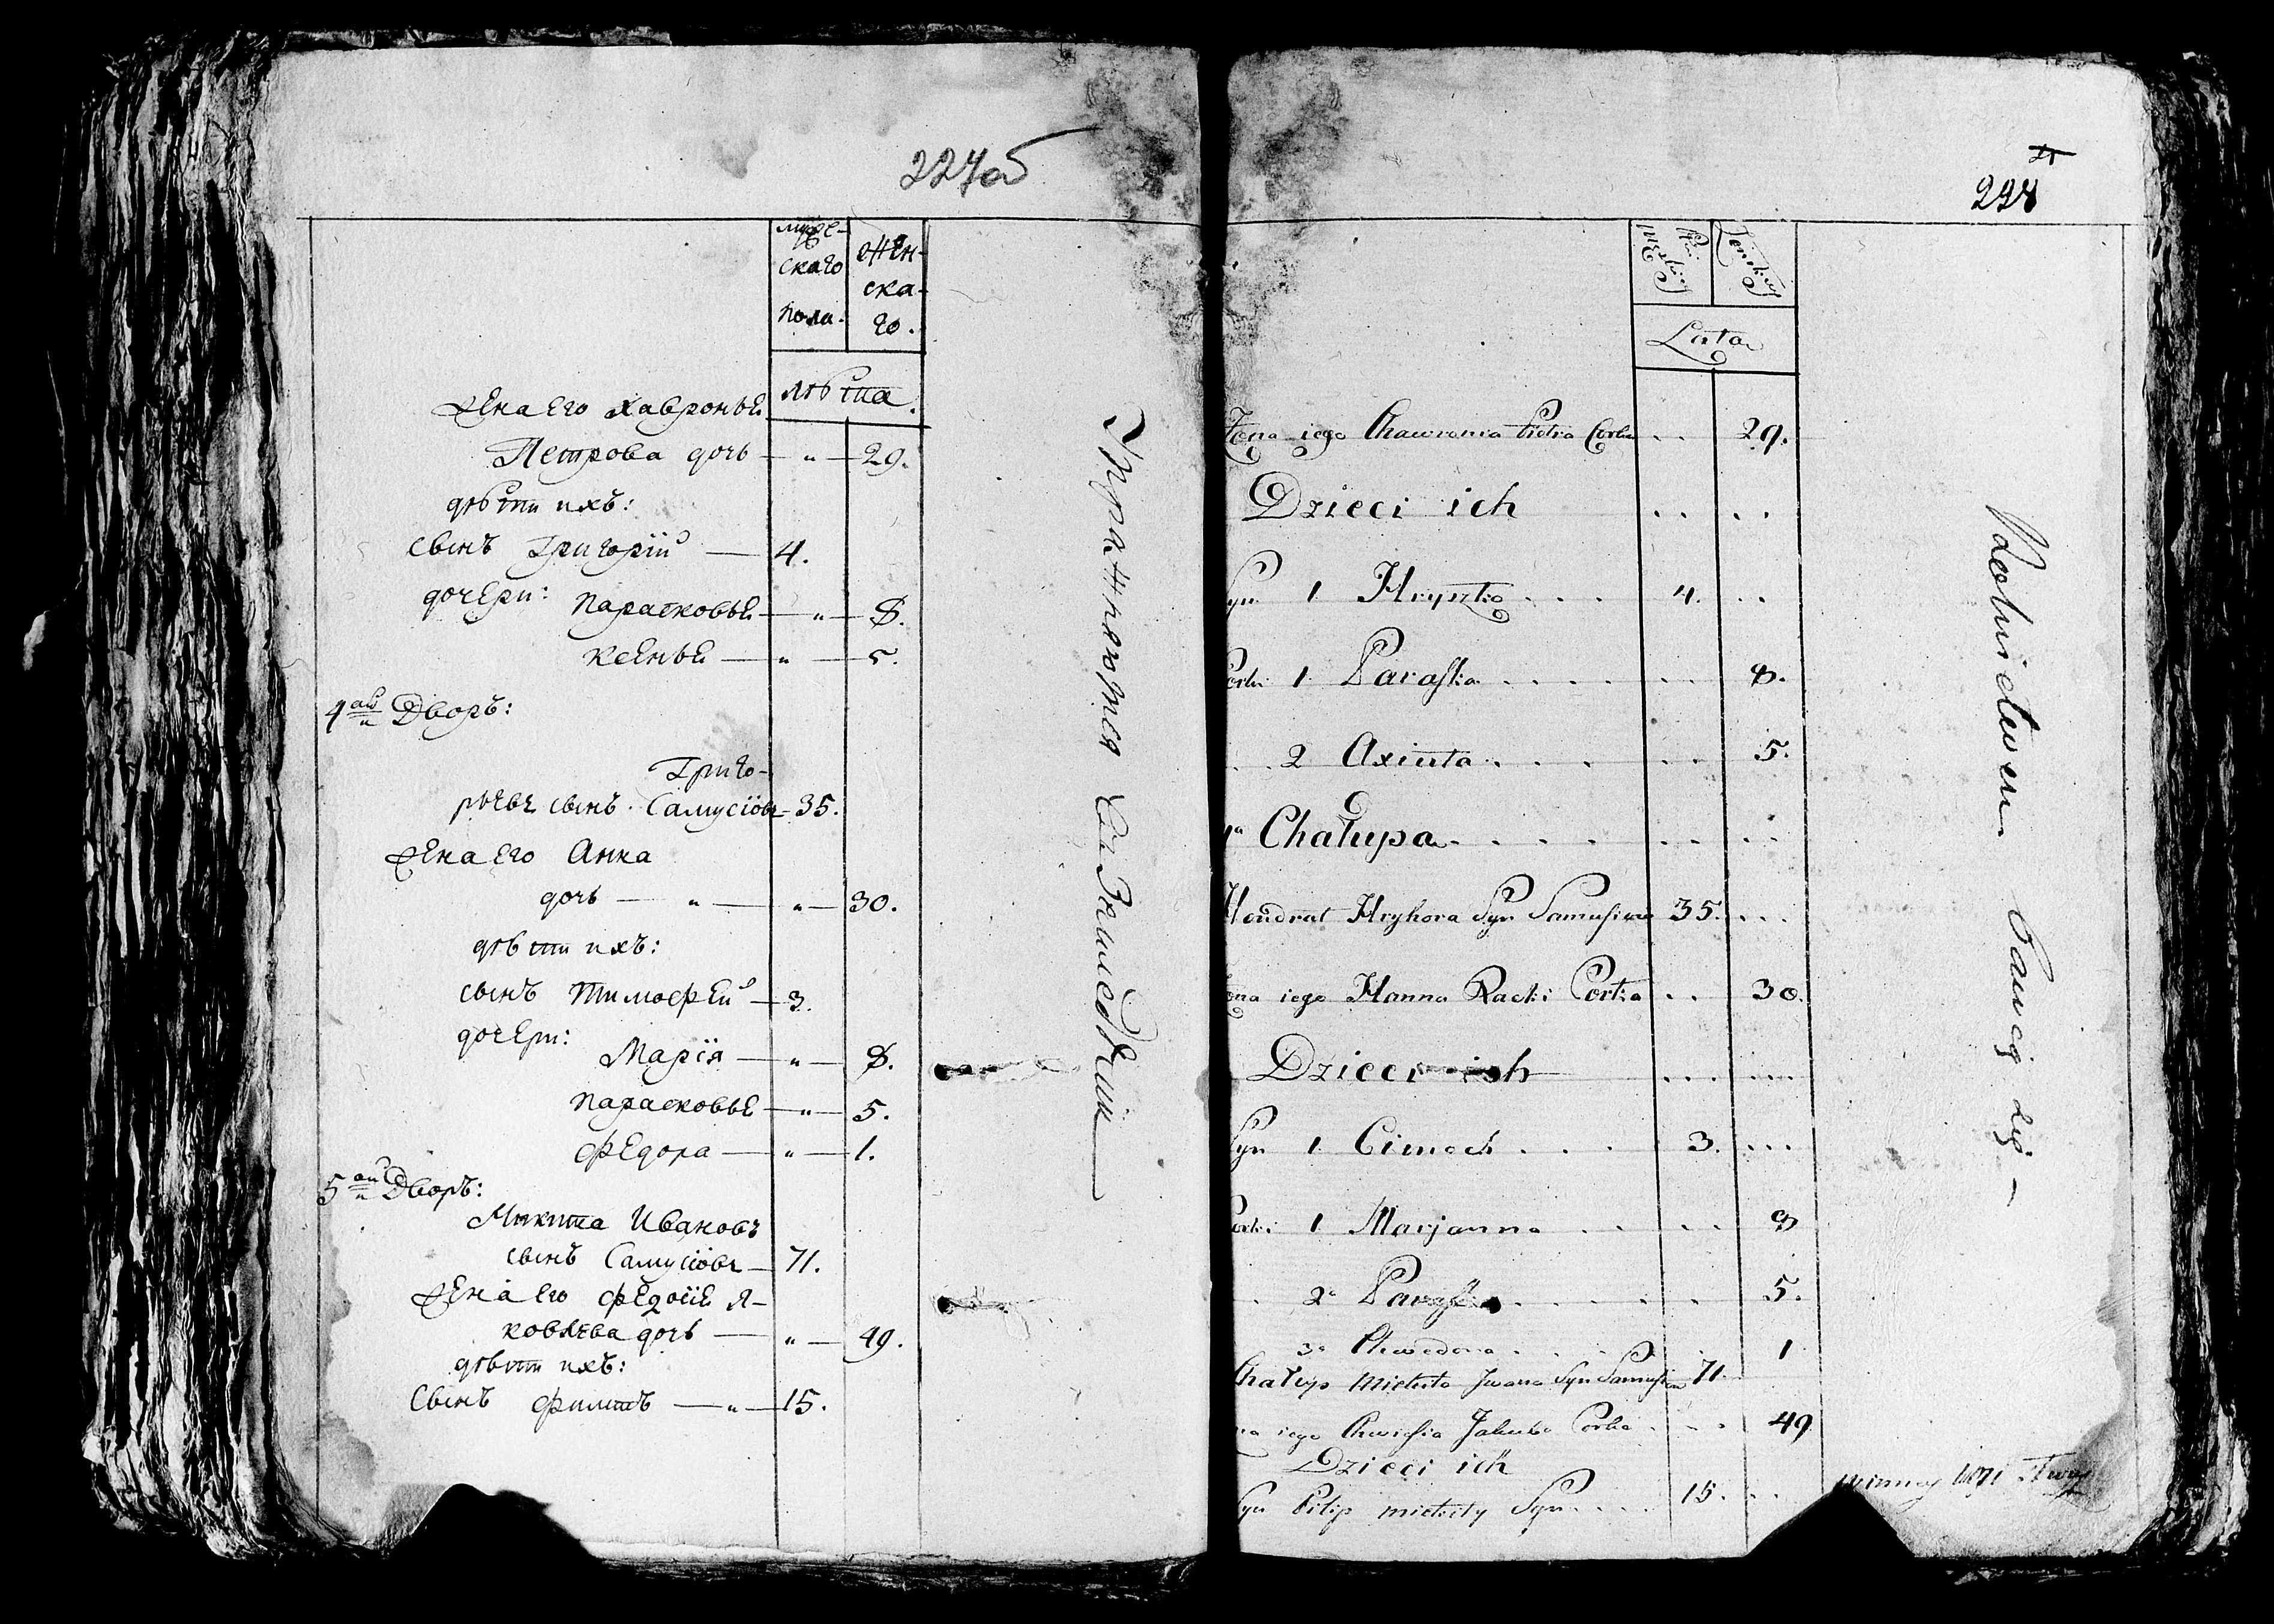 227об
муже-
скаго
пола.
жен-
ска-
го.
лѣта.
жена его хавронья
Петрова дочь — " — 29.
дѣти ихъ:
сынъ Григорій — 4.
дочери: парасковья — " — 8.
ксенья — " — 5.
4ый Дворъ:
Григо-
рьевъ сынъ Самусіовъ — 35.
жена его Анна
дочь — " — " — 30.
дѣти ихъ:
сынъ тимофей — 3.
дочери: Марія — " — 8.
парасковья — " — 5.
федора — " — 1.
5ый Дворъ:
Микита Ивановъ
сынъ Самусіовъ — 71.
жена его федосія я-
ковлева дочь — " — 49.
дѣти ихъ:
Сынъ филипъ — " — 15.
Упражняются въ Земледѣліи
228
Męzkiej
Płci
Żenskiej
Lata
Żona iego Chawronia Pietra Corka . . 29.
Dzieci ich . . . .
Syn 1 Hryszko . . . 4. . .
Corki 1 Paraska . . . . . . . 8.
. . 2 Axinta . . . . . . 5.
4a Chałupa . . . . . . . . .
Kondrat Hryhora Syn Samusiow 35. . . .
Żona iego Hanna Corka . . 30.
Dzieci ich . . . . . . .
Syn 1 Cimoch . . . 3. . . .
Corki 1 Marjanna . . . . 8
. 2a Paraska . . . . . 5.
3a Chwedora . . . . 1
Chałup Mickita Jwana Syn Samusiow 71.
Żona iego Chwiesia Jakuba Corka . . . 49
Dzieci ich
Syn Pilip mickity Syn . . . . 15. . .